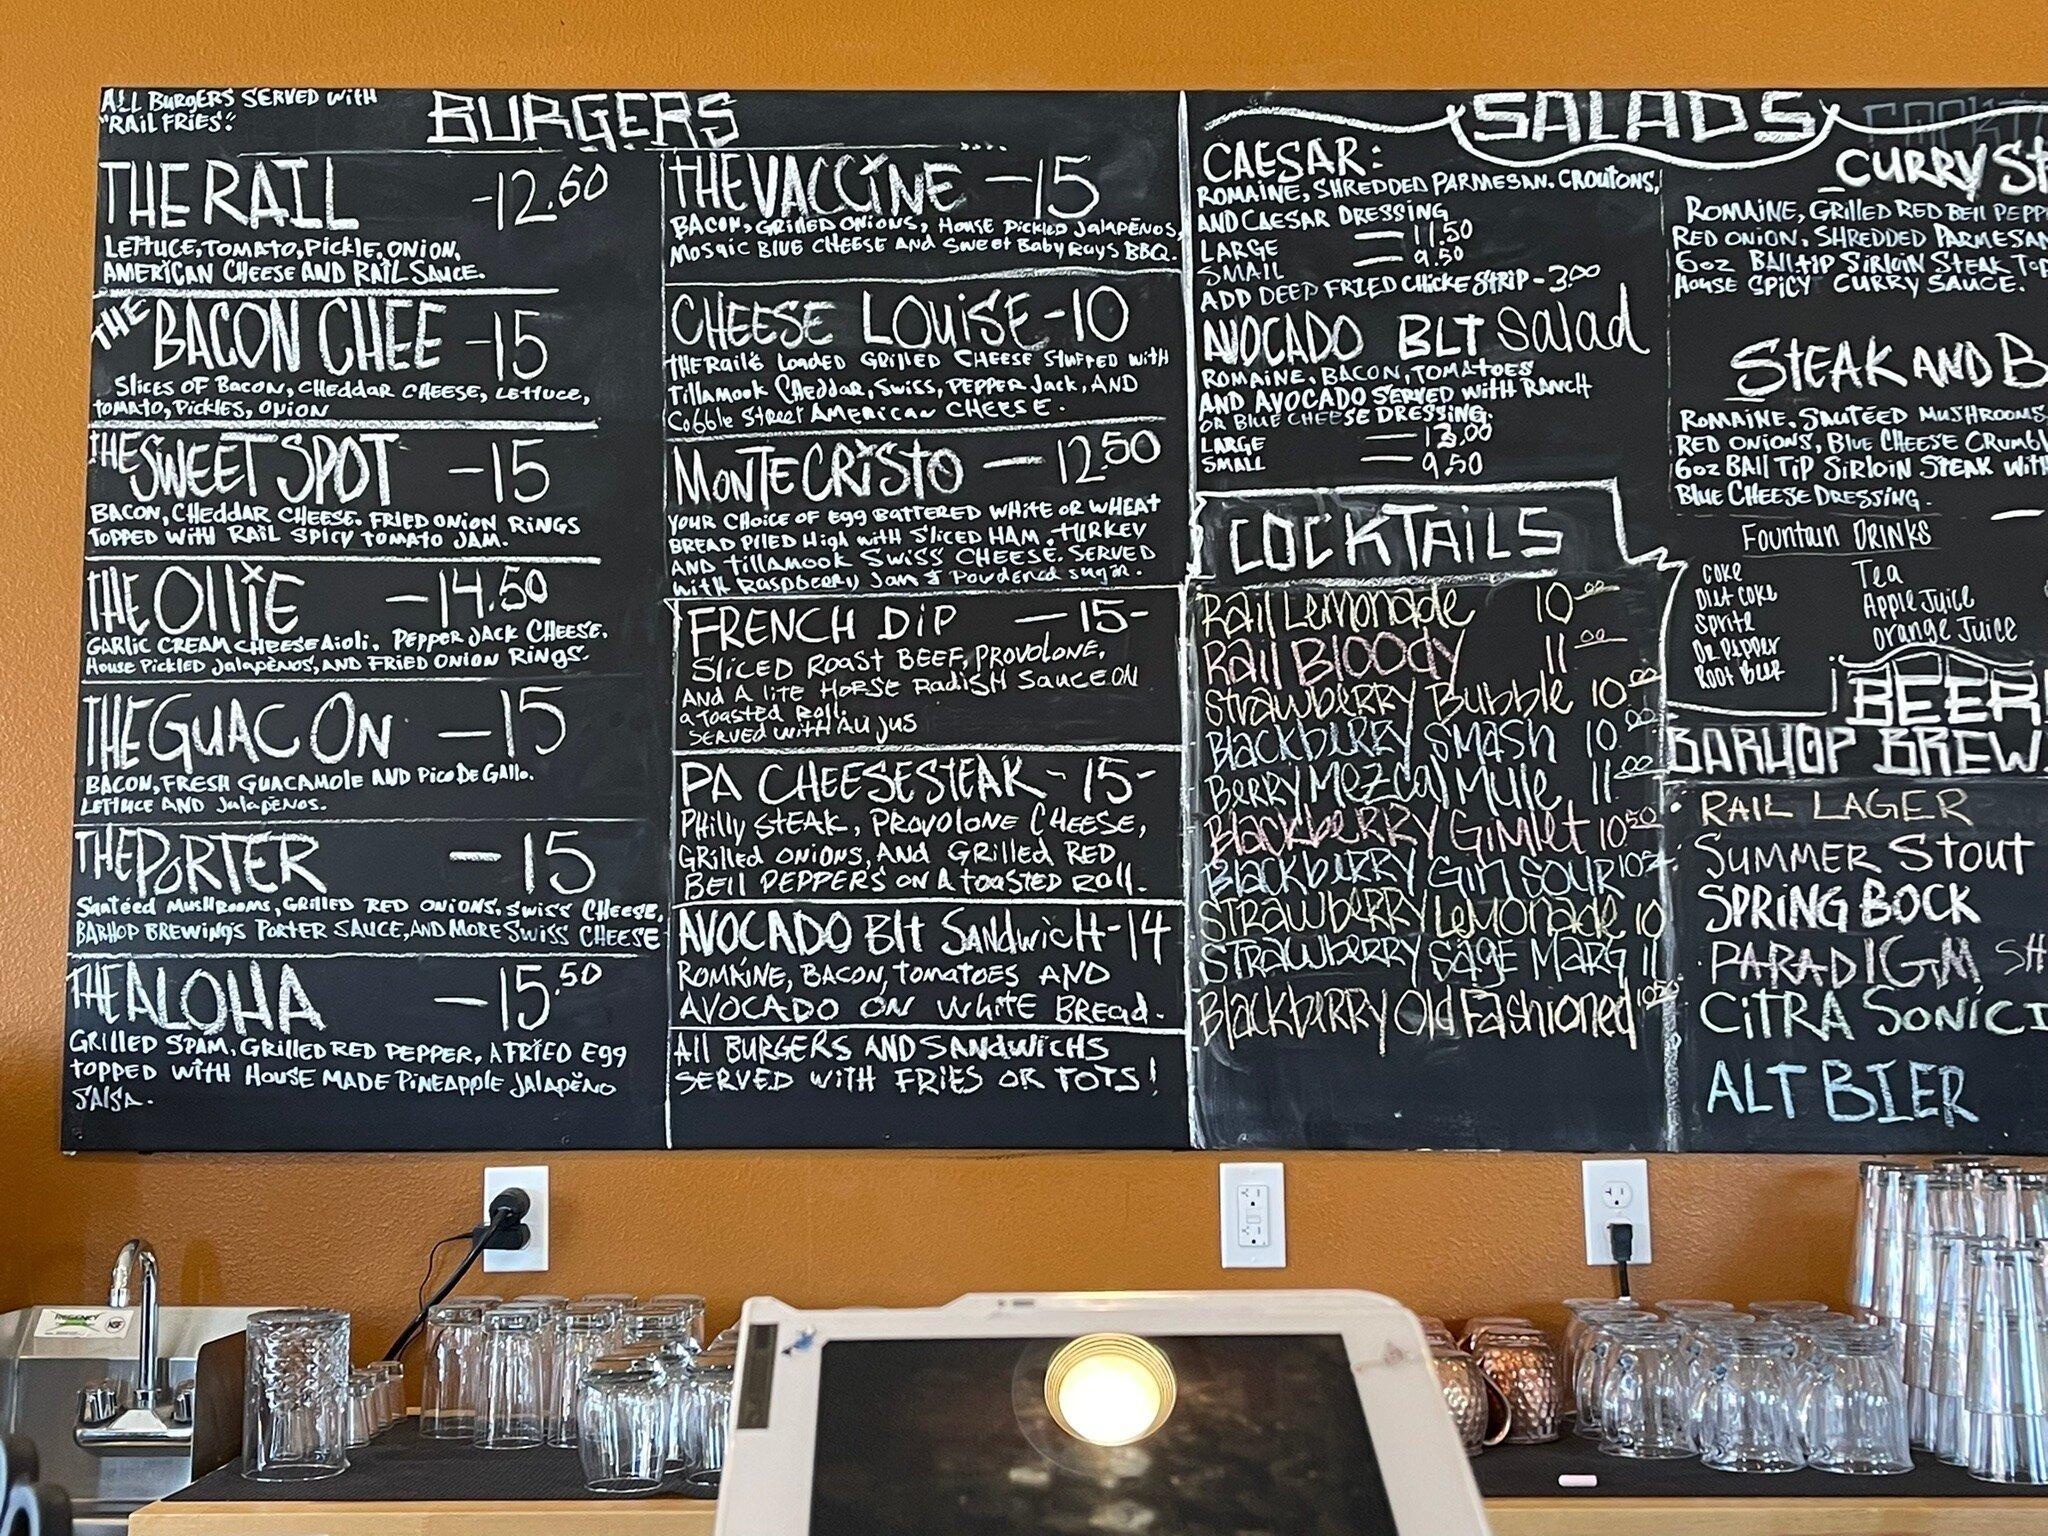 ALL BURGERS SERVED WITH
"RAIL FRIES."
BURGERS
THE RAIL -12.50
LETTUCE, TOMATO, PICKLE, ONION,
AMERICAN CHEESE AND RAIL SAUCE.
THE BACON CHEE -15
SLICES OF BACON, CHEDDAR CHEESE, LETTUCE,
TOMATO, PICKLES, ONION
THE SWEET SPOT -15
BACON, CHEDDAR CHEESE. FRIED ONION RINGS
TOPPED WITH RAIL SPICY TOMATO JAM.
THE OLLIE -14.50
GARLIC CREAM CHEESE AIOLI, PEPPER JACK CHEESE.
HOUSE PICKLED JALAPEÑOS, AND FRIED ONION RINGS.
THE GUAC ON -15
BACON, FRESH GUACAMOLE AND PICO DE GALLO.
LETTUCE AND JALAPENOS.
THE PORTER -15
SAUTÉED MUSHROOMS, GRILLED RED ONIONS, SWISS CHEESE,
BARHOP BREWING'S PORTER SAUCE, AND MORE SWISS CHEESE
THE ALOHA -15.50
GRILLED SPAM, GRILLED RED PEPPER, A FRIED EGG
TOPPED WITH HOUSE MADE PINEAPPLE JALAPEÑO
SALSA.
THE VACCINE -15
BACON, GRILLED ONIONS, HOUSE PICKLED JALAPEÑOS,
MOSAIC BLUE CHEESE AND SWEET BABY RAYS BBQ.
CHEESE LOUISE -10
THE RAIL'S LOADED GRILLED CHEESE STUFFED WITH
TILLAMOOK CHEDDAR, SWISS, PEPPER JACK, AND
COBBLE STREET AMERICAN CHEESE.
MONTE CRISTO -12.50
YOUR CHOICE OF EGG BATTERED WHITE OR WHEAT
BREAD PILED HIGH WITH SLICED HAM, TURKEY
AND TILLAMOOK SWISS CHEESE. SERVED
WITH RASPBERRY JAM & POWDERED SUGAR.
FRENCH DIP -15-
SLICED ROAST BEEF, PROVOLONE,
AND A LITE HORSE RADISH SAUCE ON
A TOASTED ROLL.
SERVED WITH AU JUS
PA CHEESESTEAK -15-
PHILLY STEAK, PROVOLONE CHEESE,
GRILLED ONIONS, AND GRILLED RED
BELL PEPPERS ON A TOASTED ROLL.
AVOCADO Blt SANDWICH-14
ROMAINE, BACON, TOMATOES AND
AVOCADO ON WHITE BREAD.
All BURGERS AND SANDWICHS
SERVED WITH FRIES OR TOTS!
SALADS
CAESAR:
ROMAINE, SHREDDED PARMESAN. CROUTONS,
AND CAESAR DRESSING
LARGE — 11.50
SMALL — 9.50
ADD DEEP FRIED CHICKE STRIP - 3.00
AVOCADO BLT Salad
ROMAINE, BACON, TOMATOES
AND AVOCADO SERVED WITH RANCH
OR BLUE CHEESE DRESSING.
LARGE — 13.00
SMALL — 9.50
COCKTAILS
Rail Lemonade 10.00
Rail Bloody 11.00
Strawberry Bubble 10.00
Blackberry Smash 10.00
Berry Mezcal Mule 11.00
Blackberry Gimlet 10.50
Blackberry Gin Sour
Strawberry Lemonade 10
Strawberry Sage Marg 11
Blackberry Old Fashioned 10.50
CURRY ST
ROMAINE, GRILLED RED BELL PEPP
RED ONION, SHREDDED PARMESAN
6oz BALLTIP SIRLOIN STEAK TOP
HOUSE SPICY CURRY SAUCE.
STEAK AND B
ROMAINE, SAUTÉED MUSHROOMS
RED ONIONS, BLUE CHEESE CRUMBL
6oz BALL TIP SIRLOIN STEAK WITH
BLUE CHEESE DRESSING.
Fountain DRINKS
Coke
Diet Coke
Sprite
Dr Pepper
Root Beer
Tea
Apple Juice
Orange Juice
BEER
BARHOP BREW
RAIL LAGER
SUMMER STOUT
SPRING BOCK
PARADIGM SH
CITRA SONIC I
ALT BIER
REGENCY
NSF